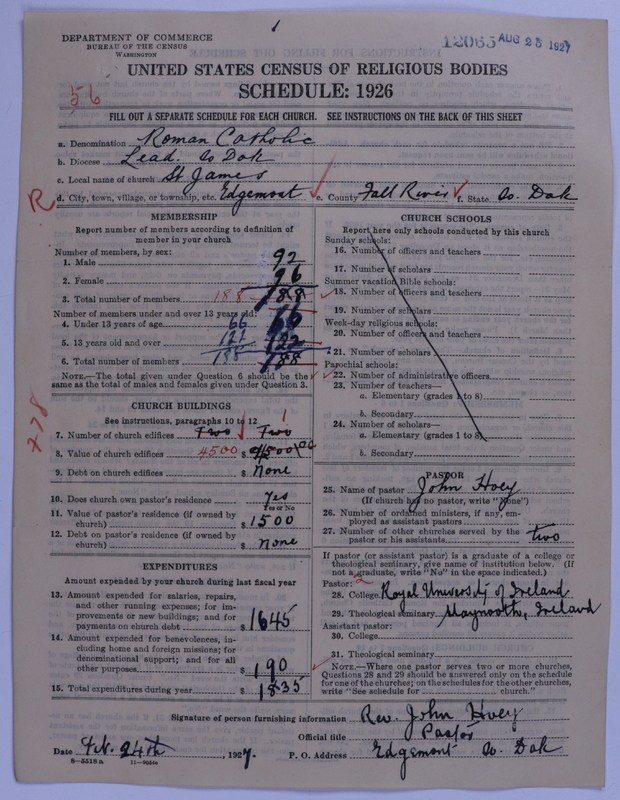 DEPARTMENT OF COMMERCE
BUREAU OF THE CENSUS
WASHINGTON
12065 AUG 25 1927
UNITED STATES CENSUS OF RELIGIOUS BODIES
SCHEDULE: 1926
56
FILL OUT A SEPARATE SCHEDULE FOR EACH CHURCH. SEE INSTRUCTIONS ON THE BACK OF THIS SHEET
a. Denomination Roman Catholic
b. Diocese Lead. So Dak
c. Local name of church St James
R
d. City, town, village, or township, etc. Edgemont e. County Fall River f. State So. Dak
MEMBERSHIP
Report number of members according to definition of member in your church
Number of members, by sex:
1. Male 92
2. Female 96
3. Total number of members 188 188
Number of members under and over 13 years old:
4. Under 13 years of age 66 66
5. 13 years old and over 122 122
6. Total number of members 188 188
NOTE.—The total given under Question 6 should be the same as the total of males and females given under Question 3.
778
CHURCH BUILDINGS
See instructions, paragraphs 10 to 12
7. Number of church edifices Two Two 1
8. Value of church edifices 4500 $ 4500
9. Debt on church edifices $ None
10. Does church own pastor's residence Yes
Yes or No
11. Value of pastor's residence (if owned by church) $ 1500
12. Debt on pastor's residence (if owned by church) $ None
EXPENDITURES
Amount expended by your church during last fiscal year
13. Amount expended for salaries, repairs, and other running expenses; for improvements or new buildings; and for payments on church debt $ 1645
14. Amount expended for benevolences, including home and foreign missions; for denominational support; and for all other purposes $ 190
15. Total expenditures during year $ 1835
CHURCH SCHOOLS
Report here only schools conducted by this church
Sunday schools:
16. Number of officers and teachers
17. Number of scholars
Summer vacation Bible schools:
18. Number of officers and teachers
19. Number of scholars
Week-day religious schools:
20. Number of officers and teachers
21. Number of scholars
Parochial schools:
22. Number of administrative officers
23. Number of teachers—
a. Elementary (grades 1 to 8)
b. Secondary
24. Number of scholars—
a. Elementary (grades 1 to 8)
b. Secondary
PASTOR
25. Name of pastor John Hoey
(If church has no pastor, write "None")
26. Number of ordained ministers, if any, employed as assistant pastors
27. Number of other churches served by the pastor or his assistants two
If pastor (or assistant pastor) is a graduate of a college or theological seminary, give name of institution below. (If not a graduate, write "No" in the space indicated.)
Pastor: 2
28. College Royal University of Ireland
29. Theological seminary Maynooth, Ireland
Assistant pastor:
30. College
31. Theological seminary
NOTE.—Where one pastor serves two or more churches, Questions 28 and 29 should be answered only on the schedule for one of the churches; on the schedules for the other churches, write "See schedule for ........ church."
Signature of person furnishing information Rev. John Hoey
Official title Pastor
Date Feb. 24th, 1927. P. O. Address Edgemont So. Dak
8—5518a 11—9884